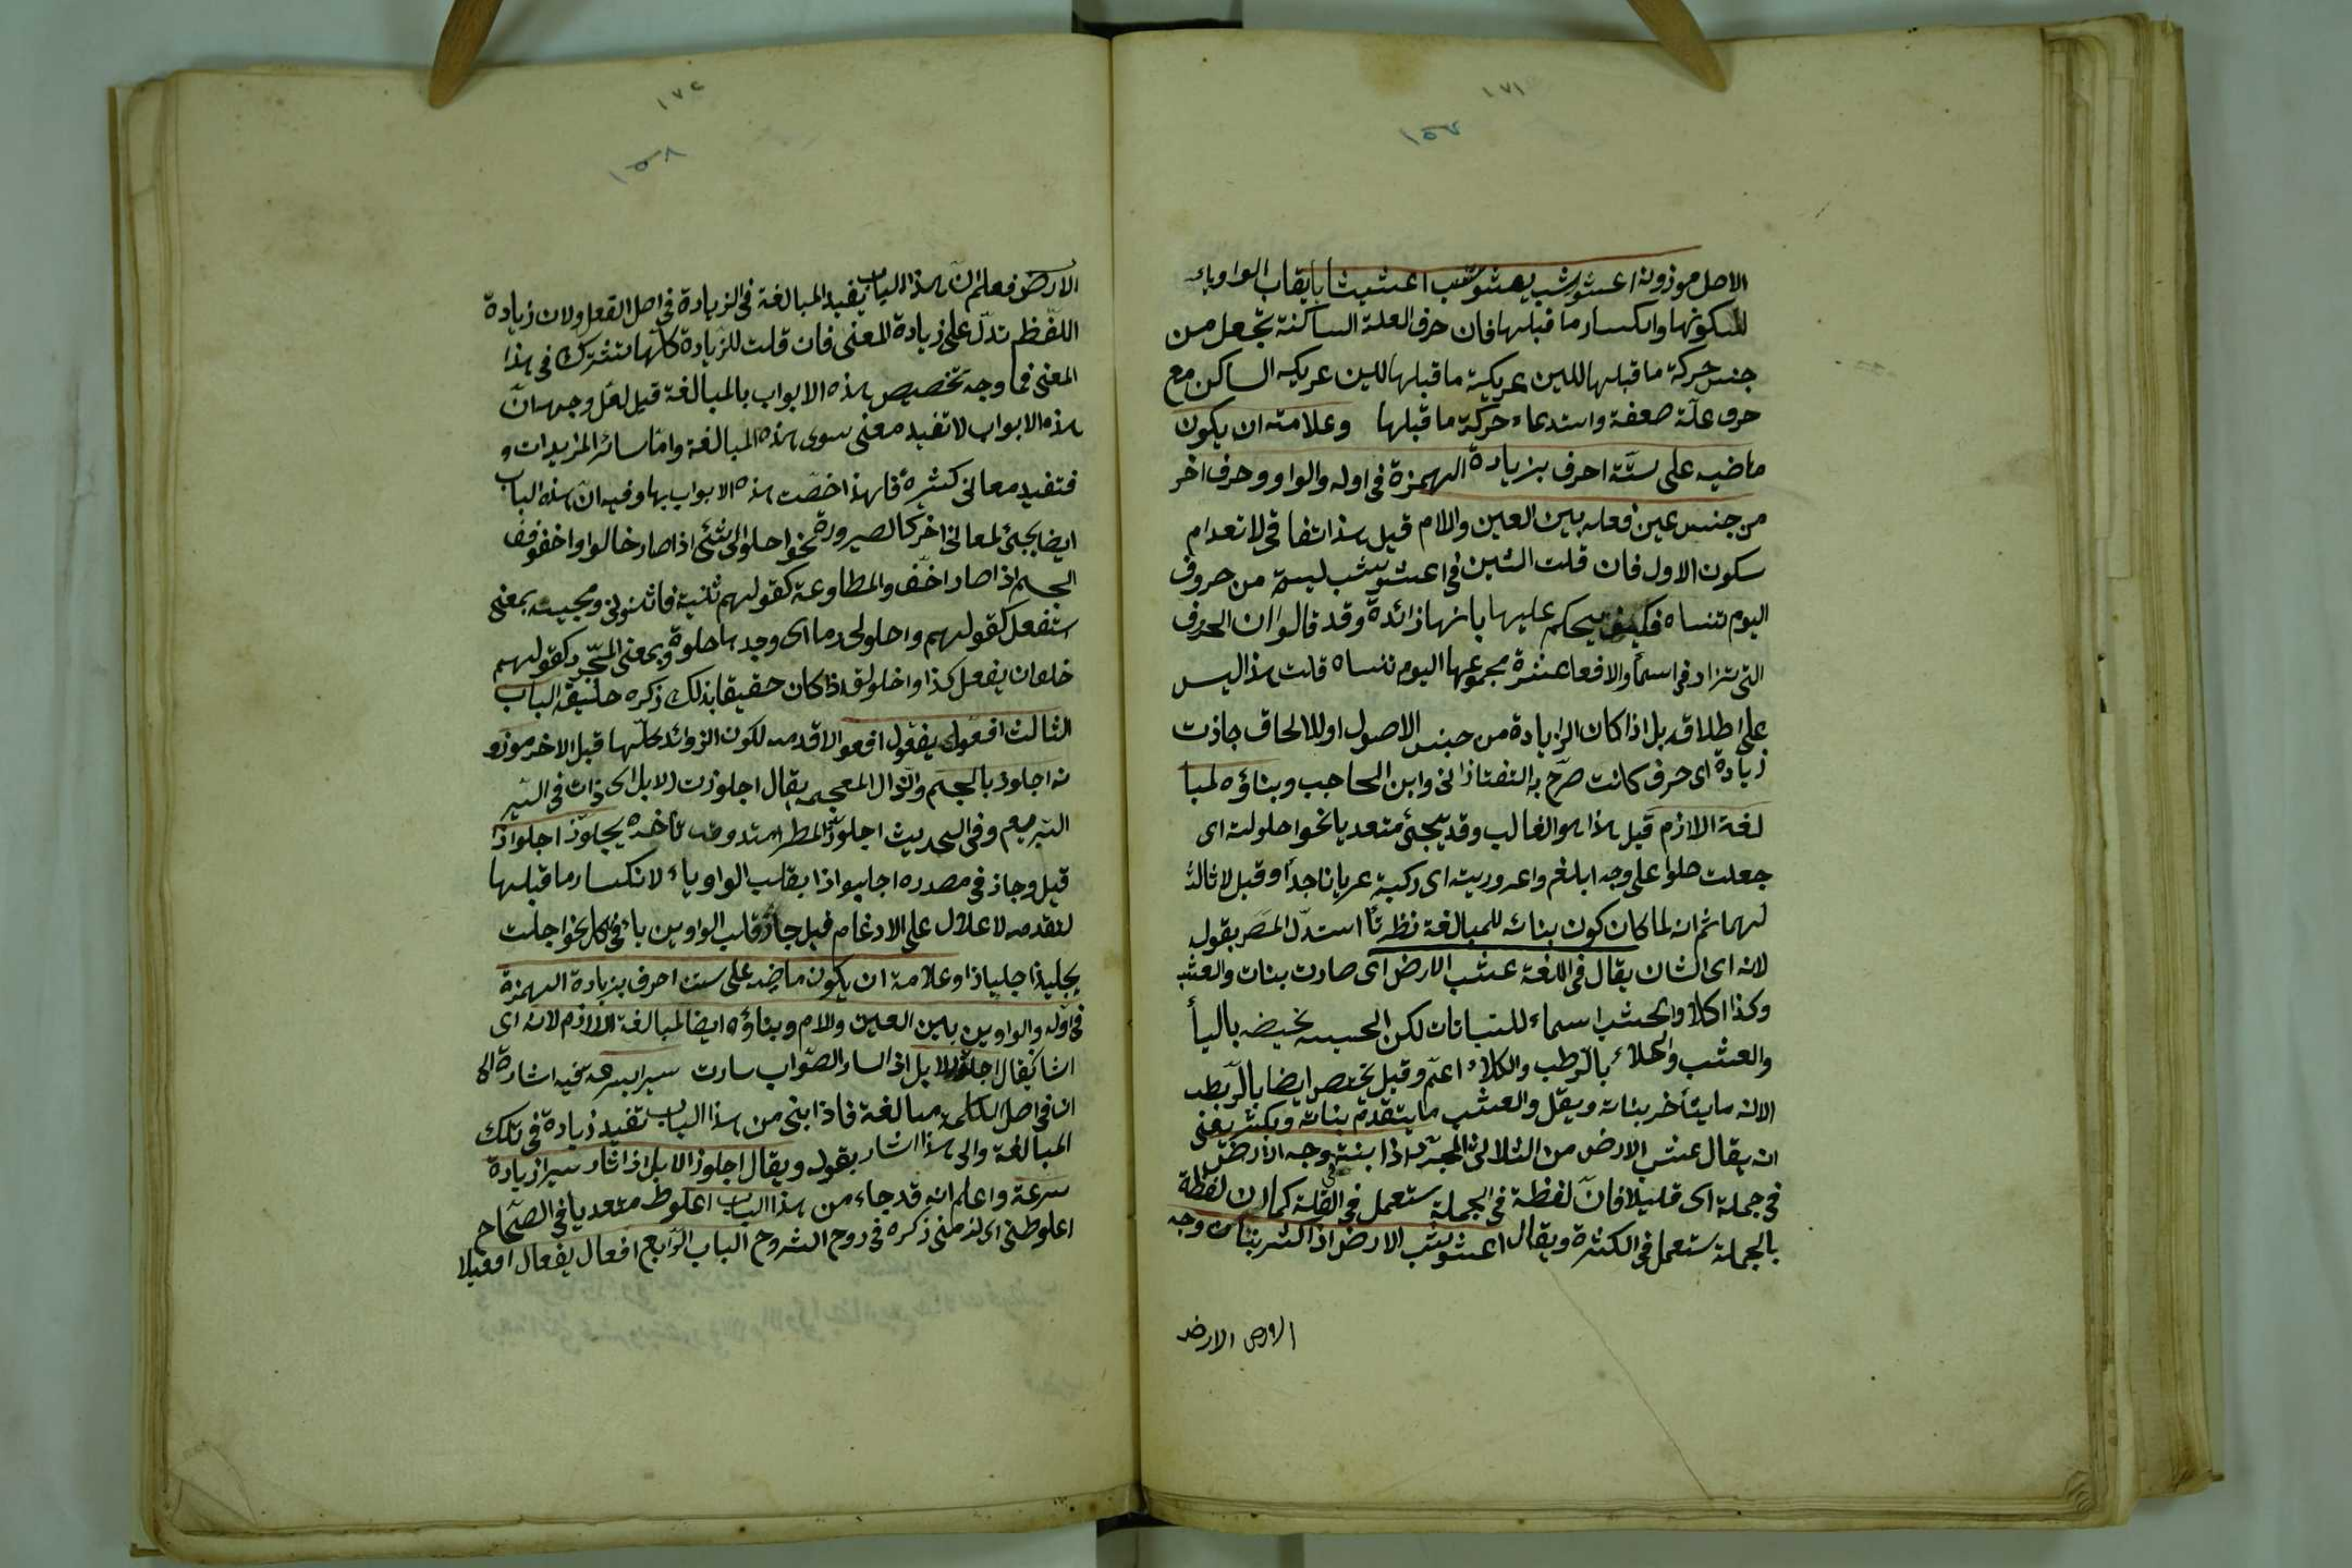 ١٧١
١٥٧
الاصل موزونه اعشوشب يعشوشب اعشيشابا يقلب الواو ياء
لسكونها وانكسار ما قبلها فان حرف العلة الساكنة تجعل من
جنس حركة ما قبلها للين عريكة ما قبلها للين عريكه الساكن مع
حرف علّة ضعفة واستدعاء حركة ما قبلها وعلامته ان يكون
ماضيه على ستّة احرف بزيادة الهمزة فى اوله والواو وحرف اخر
من جنس عين فعله بين العين واللام قيل هذا اتفاقى لا نعدام
سكون الاول فان قلت الشين فى اعشوشب ليست من حروف
اليوم تنساه فكيف يحكم عليها بانها زائدة وقد قالوا ان الحروف
التى تزاد فى اسماء والافعا عشرة مجموعها اليوم تنساه قلت هذا ليس
على اطلاقه بل اذا كان الزيادة من جنس الاصول او للالحاق جازت
زيادة اى حرف كانت صرّح به التفتازانى وابن الحاجب وبناؤه لمبا
لغة اللازم قيل هذا هو الغالب وقد يجئ متعديا نحو احلوليته اى
جعلت حلوا على وجه ابلغ واعروريته اى ركبته عريانا جدا وقيل لا ثالث
لهما ثم انه لما كان كون بنائه للمبالغة نظريّا استدلّ المص بقوله
لانه اى الشان يقال فى اللغة عشب الارض اى صارت بنات والعشب
وكذا اكلا والحشب اسماء للنباتات لكن الحشيش يخيضه باليأ
والعشب والحلاء بالرّطب والكلاء اعمّ وقيل يختص ايضا بالرّطب
الا انه ما يتأخر بناته ويقل والعشب ما يتقدم بناته ويكثر يعنى
انه يقال عشب الارض من الثلاثى المجرّد اذا بنت وجه الارض
فى جملة اى قليلا فانّ لفظة فى الجملة ستعمل فى القلة كما ان لفظة
بالجملة ستعمل فى الكثرة ويقال اعشوشب الارض اذا كثر بنات وجه
الارض الارض
١٧٢
١٥٨
الارض فعلم انّ هذا الباب يفيد المبالغة فى الزيادة فى اصل الفعل ولان زيادة
اللّفظ تدلّ على زيادة المعنى فان قلت للزّيادة كلّها تشترك فى هذا
المعنى فما وجه تخصيص هذه الابواب بالمبالغة قيل لعلّ وجهه انّ
هذه الابواب لا تفيد معنى سوى هذه المبالغة وامّا سائر المزيدات و
فتفيد معانى كثيرة فلهذا خصّت هذه الابواب بها وفيه انّ هذه الباب
ايضا يجئ لمعانى اخر كالصيرورة نحو احلولى الشّئ اذا صار خالوا واخفوفف
الجسم اذا صار اخفّ والمطاوعة كقولهم ثنيته فاثنونى ومجيئه بمعنى
استفعل كقولهم واحلولى دما اى وجدها حلوة وبمعنى المجّرد كقولهم
خلوان يفعل كذا واخلولق اذا كان حقيقا بذلك ذكره حليقه الباب
الثالث افعوّل يفعوّل افعوالا قدمه لكون الزوائد كلّها قبل الاخر موزو
نه اجلوذ بالجيم والذال المعجمه يقال اجلوزت الابل اى ذات فى السّير
السّريع وفى الحديث اجلوذّ المطر امتدوقت تأخره يجلوّذ اجلواذا
قيل وجاز فى مصدره اجليواذا بقلب الواو ياء لانكسار ما قبلها
لتقدمه لاعلال على الادغام قيل جاز قلب الواوين ياء فى كل نحو اجلت
يجليذ اجلياذا وعلامة ان يكون ماضيه على ستت احرف بزيادة الهمزة
فى اوله والواوين بين العين واللام وبناؤه ايضا لمبالغة اللازم لانه اى
الشا يقال اجلوّذ الابل اذا سار الصّواب سارت سيرا بسرعه فيه اشارة الى
ان فى اصل الكلمة مبالغة فاذا ابنى من هذا الباب تفيد زيادة فى تلك
المبالغة والى هذا اشار بقوله ويقال اجلوذ الابل اذا سار سيرا زيادة
سرعة واعلم انه قد جاء من هذا الباب اعلوّط متعديا فى الصّحاح
اعلوطنى اى لزمنى ذكره فى روح الشروح الباب الرّابع افعال يفعال افعيلا